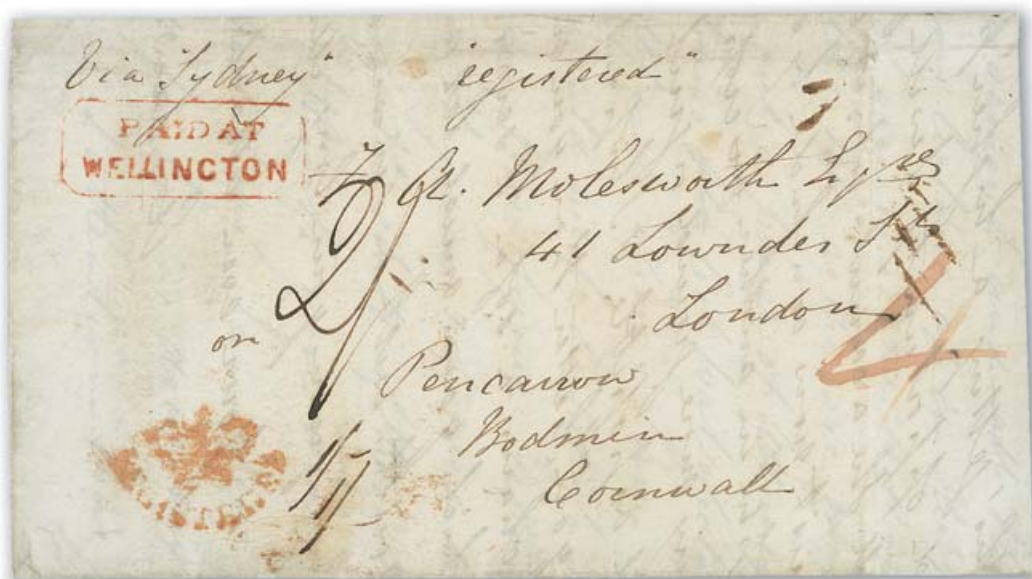 Via "Sydney" "registered"
PAID AT
WELLINGTON
Molesworth Esqre
41 Lowndes
London
2/
4
or
Pencarrow
Bodmin
Cornwall
REGISTERED